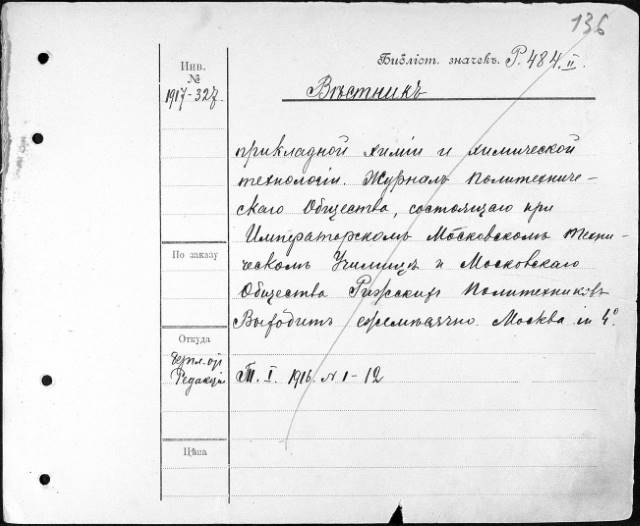 136
Библіот. значекъ. P. 484. II.
Инв.
№
1917-327.
Вѣстникъ
прикладной химіи и химической
технологіи. Журналъ Политехниче-
скаго Общества, состоящаго при
Императорскомъ Московскомъ Техни-
ческомъ Училищѣ и Московскаго
Общества Рижскихъ Политехниковъ
Выходитъ ежемѣсячно. Москва in 4°.
По заказу
Откуда
Редакціи
Т. I. 1916. N 1-12
Цѣна